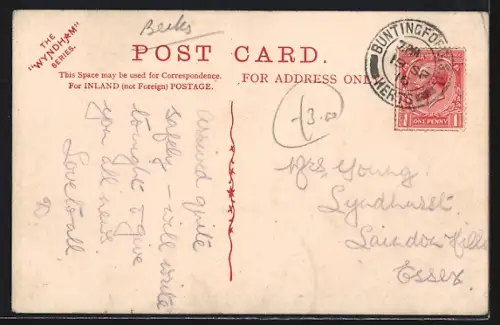 THE
"WYNDHAM"
SERIES.
POST CARD.
This Space may be used for Correspondence.
For INLAND (not Foreign) POSTAGE.
FOR ADDRESS ONLY
BUNTINGFORD
HERTS
1 1
ONE PENNY
3.00
arrived quite
safely – will write
tonight & give
you all news
Love to all
D
Mrs Young.
Lyndhurst.
Laindon Hills
Essex.